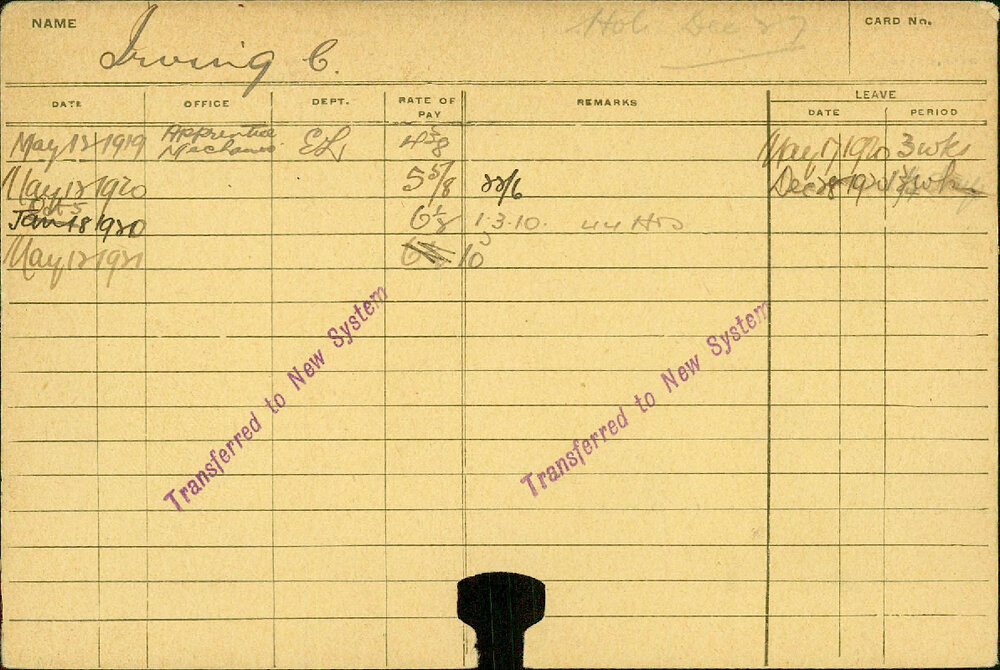 NAME
Irving C.
Hol. Dec 27
CARD No.
DATE OFFICE DEPT. RATE OF PAY REMARKS LEAVE
DATE PERIOD
May 12 1919 Apprentice Mechanic EL 4 5/8 May 17 1920 3 wks
May 12 1920 5 5/8 22/6 Dec 28 1920
Oct 5
Jan 18 1920 6 1/2 1.3.10. 44 Hrs
May 12 1921 10
Transferred to New System
Transferred to New System